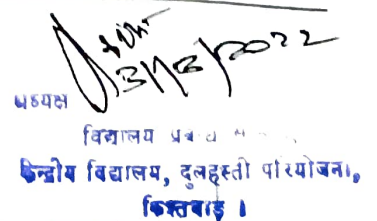 3/12/2022
अध्यक्ष
विद्यालय प्रबंध
केन्द्रीय विद्यालय, दुलहस्ती परियोजना,
किश्तवाड़ ।